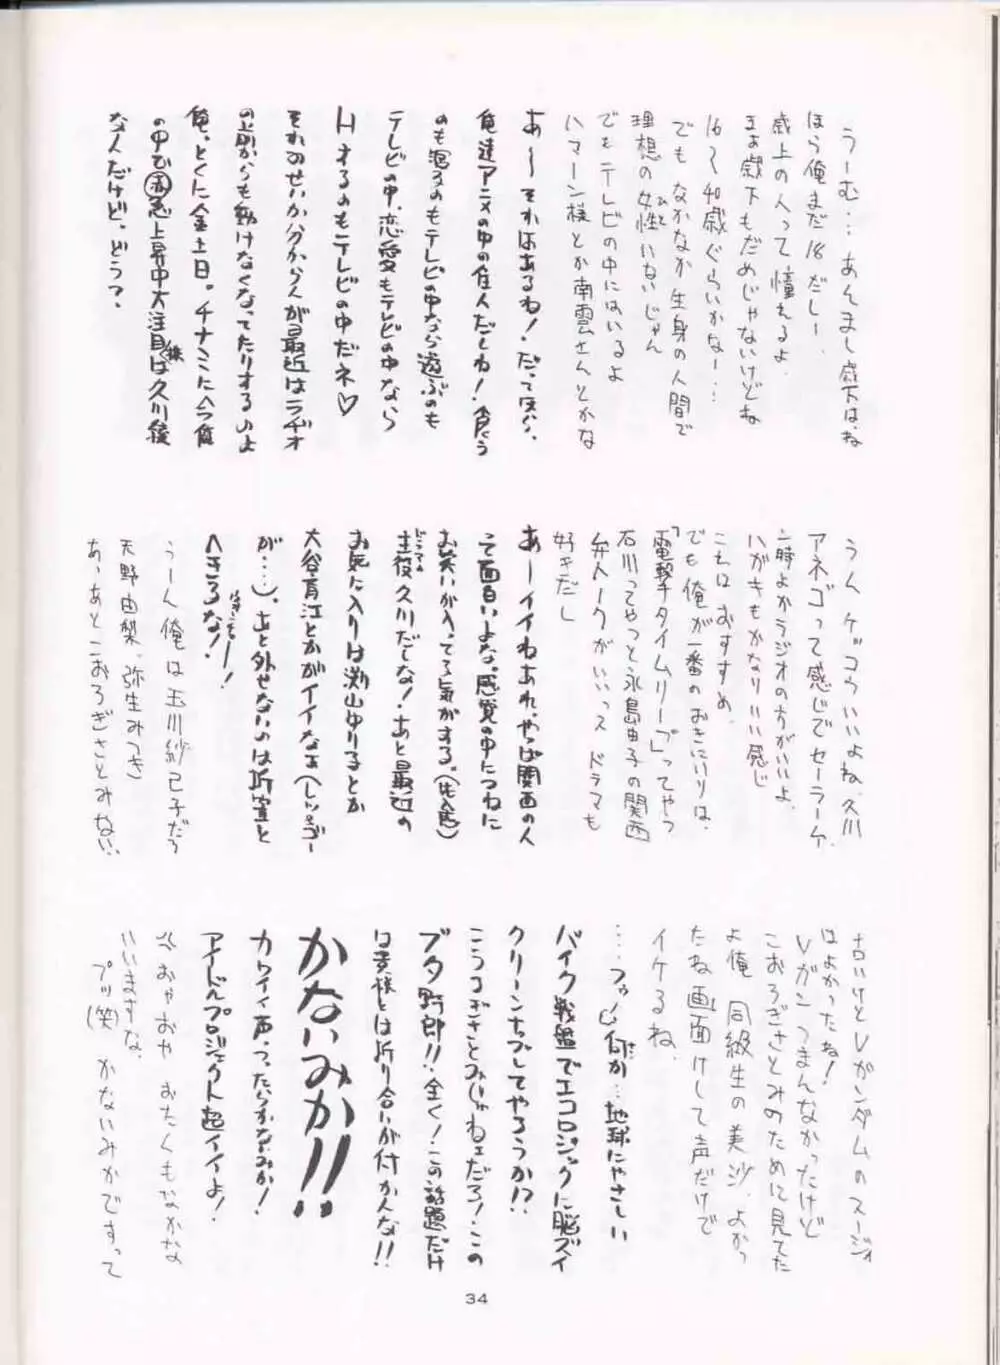 うーむ…あんまし歳下はね
ほら俺まだ18だしー、
歳上の人って憧れるよ
まぁ歳下もだめじゃないけどね
16〜40歳ぐらいかなー…
でも なかなか生身の人間で
理想の女性いないじゃん
ひと
でもテレビの中にはいるよ
ハマーン様とか南雲さんとかな
あ〜〜それはあるね!だって僕ら、
俺達アニメの中の住人だしね!食う
のも寝るのもテレビの中なら遊ぶのも
テレビの中、恋愛もテレビの中なら
Hするのもテレビの中だネ♡
それのせいか分からんが最近はラヂオ
の前からも動けなくなってたりするのよ
俺。とくに金土日。チナミに今俺
の中で㊙急上昇中大注目株は久川綾
なんだけど、どぅ?
うん ケッコウいいよね、久川
アネゴって感じでセーラーケ
ン時よかラジオの方がいいよ、
ハガキもかなりいい感じ
これはおすすめ、
でも俺が一番のおきにいりは、
「電撃タイムリープ」ってやつ
石川ってやつと永島由子の関西
弁トークがいいっス ドラマも
好きだし
あーイイねあれ、やっぱ関西の人
って面白いよな。感覚の中につねに
お笑いが入ってる気がする。
主役久川だしな!あと最近の
お気に入りは渕山ゆり子とか
大谷育江とかがイイなぁ
が…)。あと外せないのは折笠と
へきるな!
うーん俺は玉川紗己子だろ
天野由梨、弥生みつき
あーあとこおろぎさとみない、
古いけどVガンダムのスージィ
はよかったね!
Vガンつまんなかったけど
こおろぎさとみのために見てた
よ俺 同級生の美沙、よかっ
たね画面けして声だけで
イケるね、
…フゥ〜何だか…地球にやさしい
バイク戦艦でエコロジックに脳ズイ
クリーンナップしてやろうか!?
こうろぎさとみじゃねェだろ!この
ブタ野郎!!全く!この話題だけ
は貴様とは折り合いが付かんな!!
かないみか!!
カワイイ声、つったらかないみか!
アイドルプロジェクト超イイよ!
おやおや おたくもなかな
いいますな、
プッ(笑) かないみかですって
34